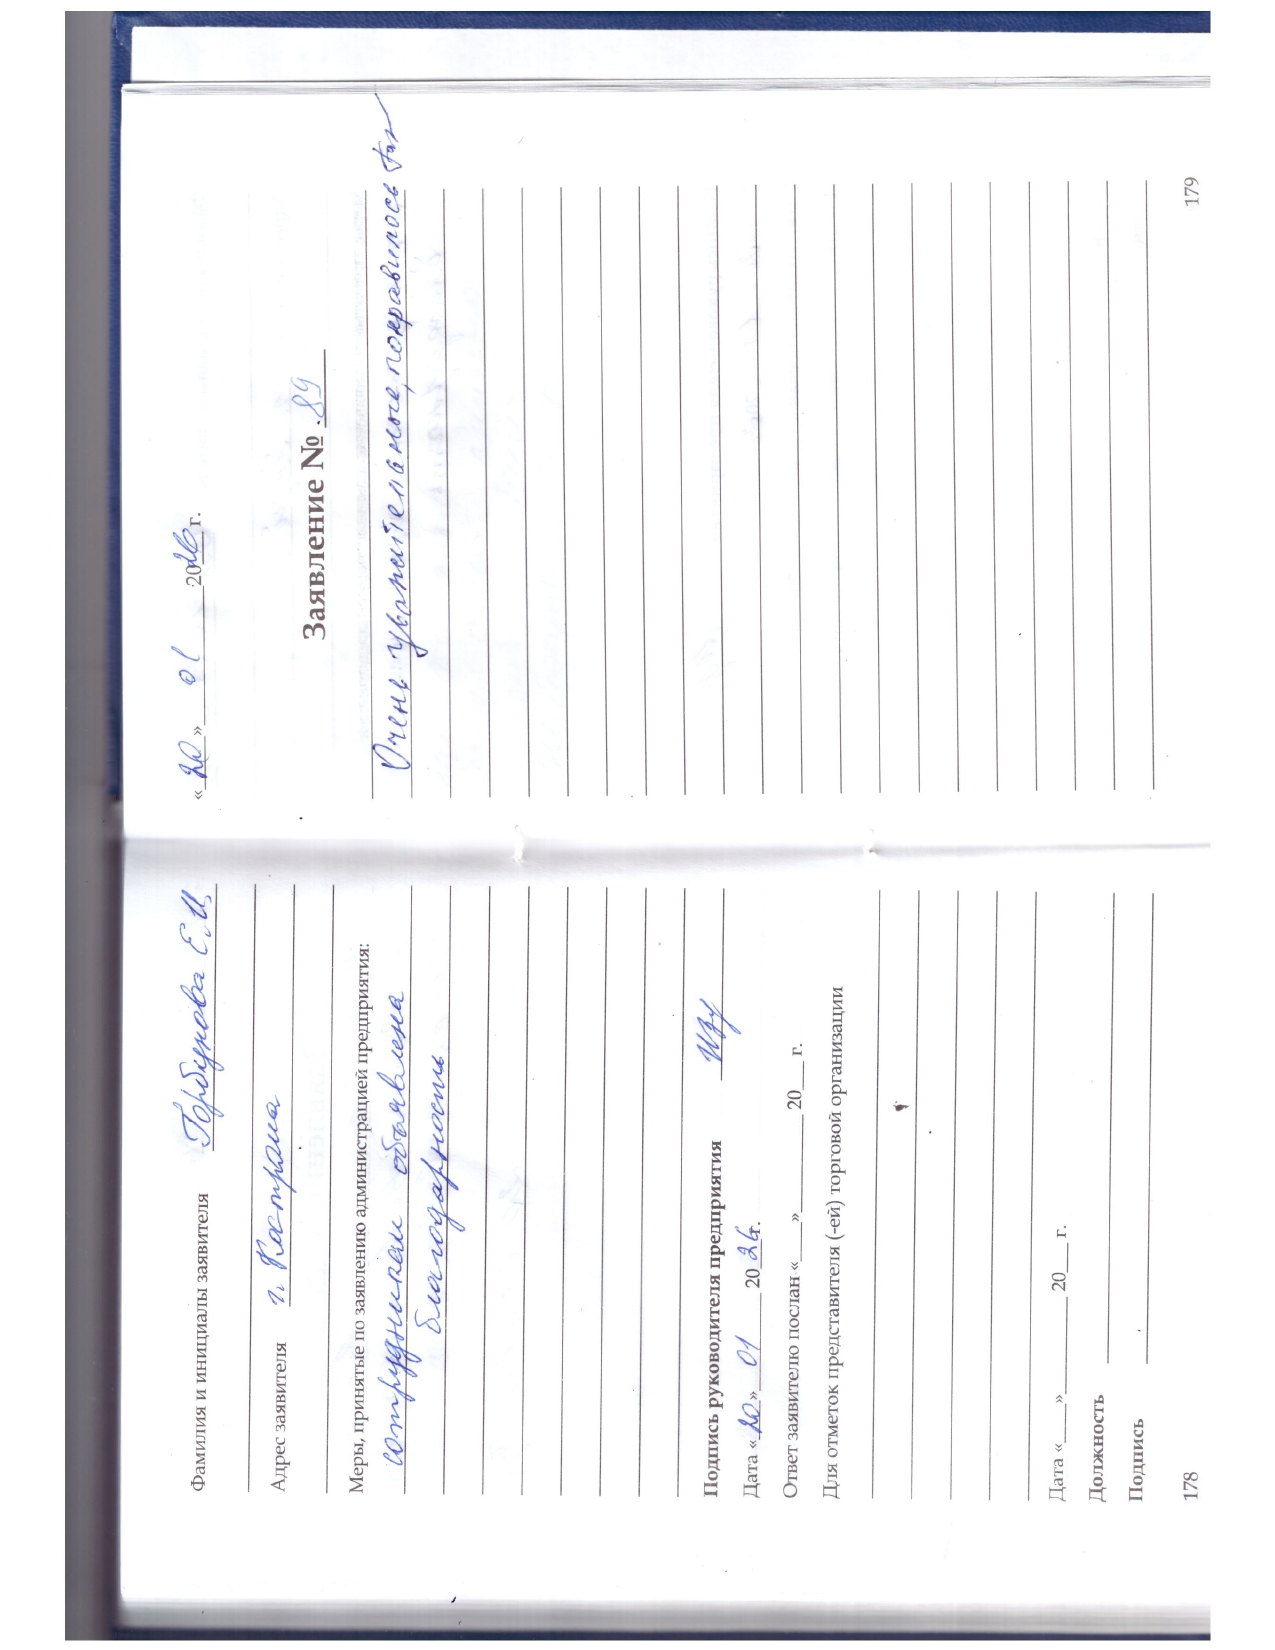 Фамилия и инициалы заявителя Горбунова Е.И
Адрес заявителя г. Кострома
Меры, принятые по заявлению администрацией предприятия:
сотрудникам объявлена
благодарность
Подпись руководителя предприятия
Дата «20» 01 2026г.
Ответ заявителю послан «___»__________ 20___ г.
Для отметок представителя (-ей) торговой организации
Дата «____»__________ 20___ г.
Должность
Подпись
178
«20» 01 2026 г.
Заявление № 89
Очень уважительные, понравилось
179